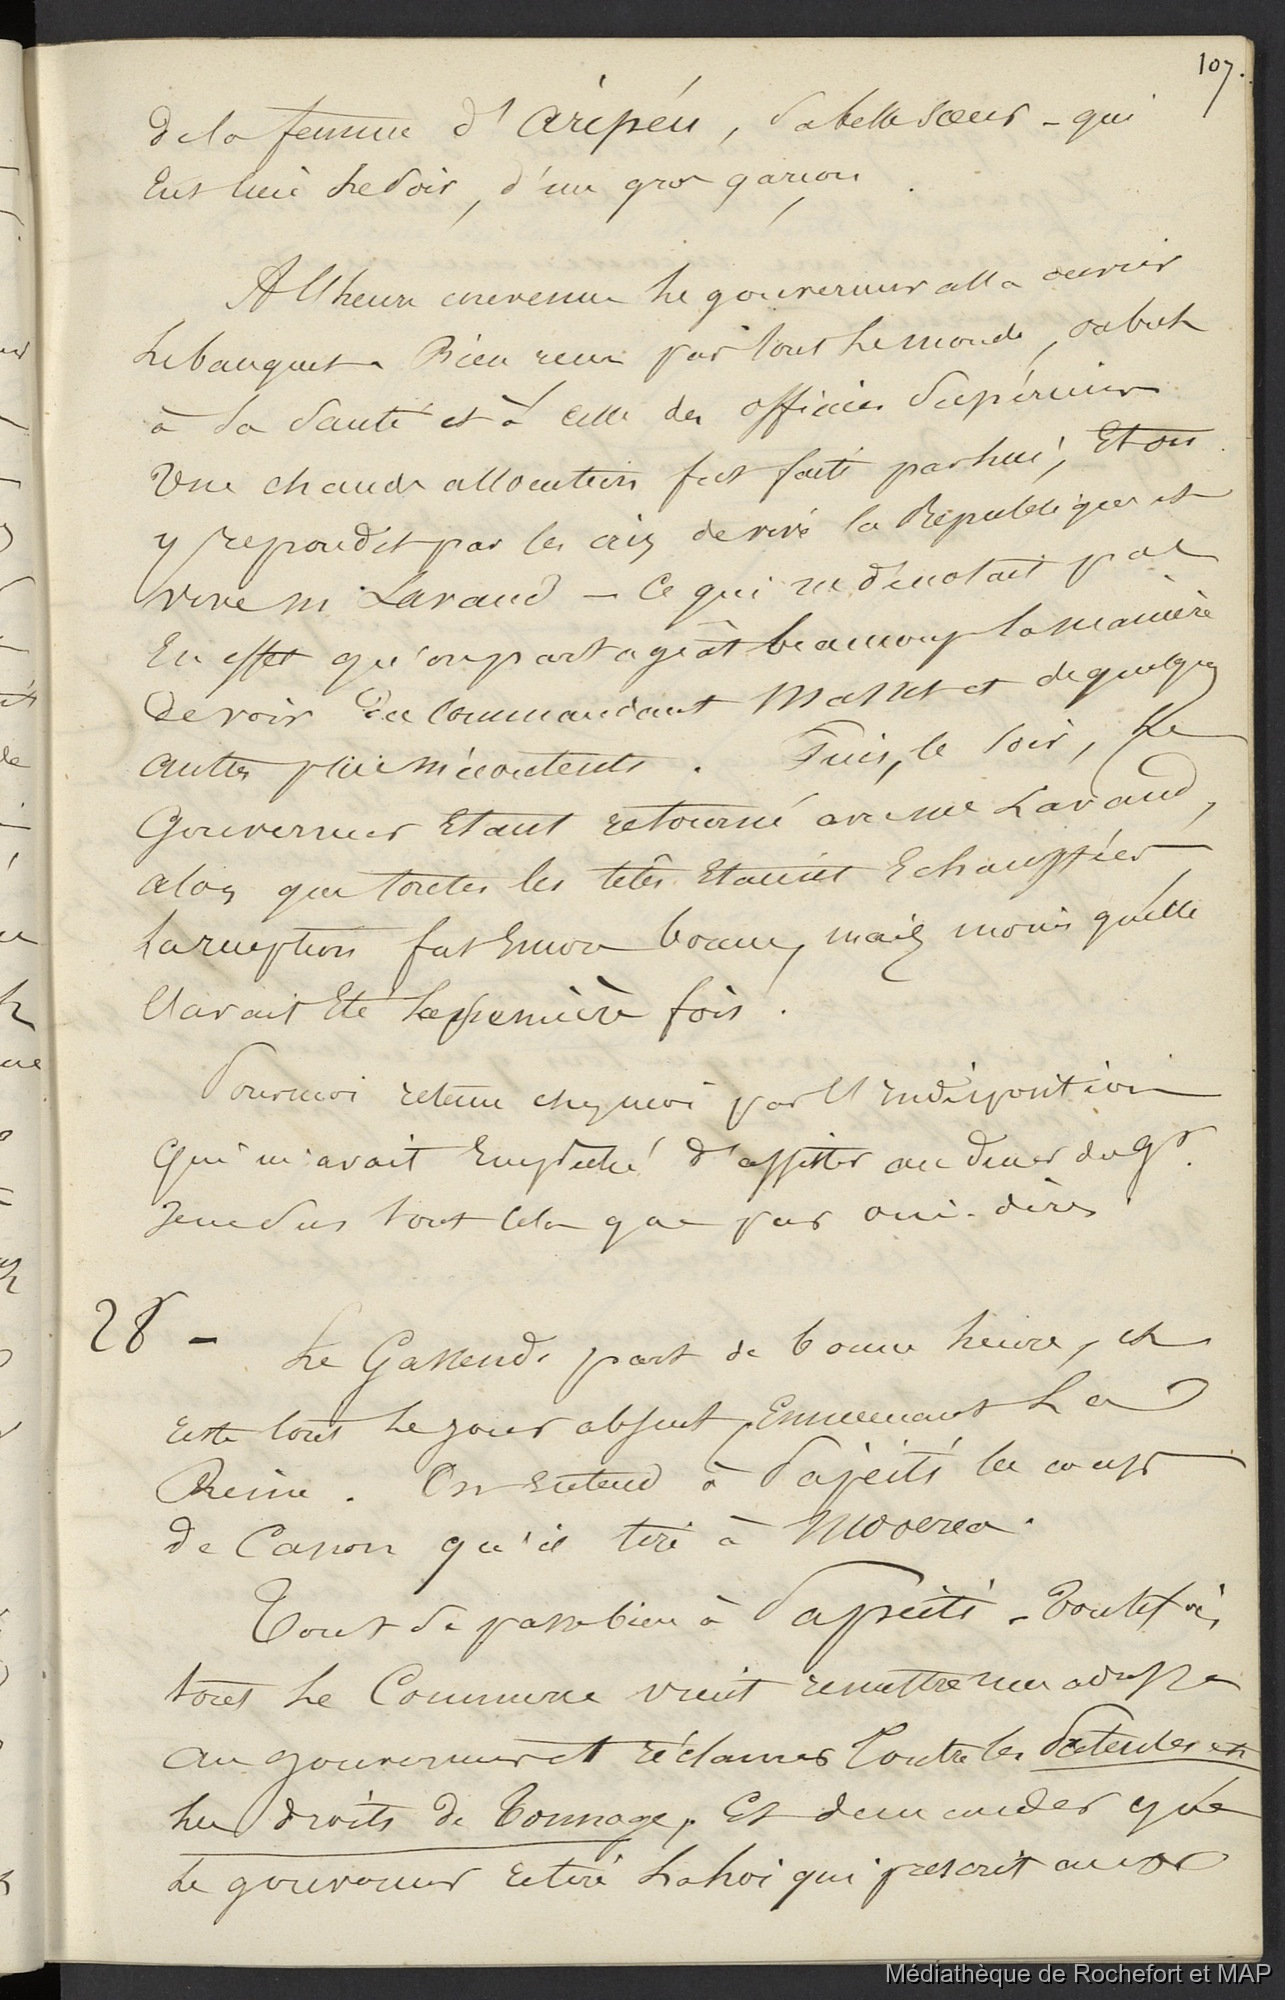 107.
de la femme d'Aripéu, sa belle sœur – qui
eut lieu le soir, d'un gros garçon.
A l'heure convenue le gouverneur alla ouvrir
le banquet. Bien reçu par tout le monde, on but
à sa santé et à celle des officiers supérieurs
Une chaude allocution fut faite par lui, et on
y repondit par les cris de vive la République et
vive m Lavaud – Ce qui ne dénotait pas
en effet qu'on partageât beaucoup la manière
de voir du commandant Masset et de quelques
autres plus mécontents. Puis, le soir, le
Gouverneur étant retourné avec Me Lavaud,
alors que toutes les têtes étaient échauffées
la reception fut encore bonne, mais moins qu'elle
l'avait été la première fois.
Pour moi retenu chez moi par l'indisposition
qui m'avait empêché d'assister au diner du Gr.
je ne sus tout cela que par oui-dires
28 – Le Gassendi part de bonne heure, et
reste tout le jour absent, emmenant La
Reine. On entend à Papeiti les coups
de Canon qu'il tire à Moorea.
Tout se passe bien à Papeiti. Toutefois
tout le Commerce vient remettre une adresse
au gouverneur et réclamer contre les Patentes et
les droits de Tonnage, Et demander que
le gouverneur retire la loi qui prescrit aux